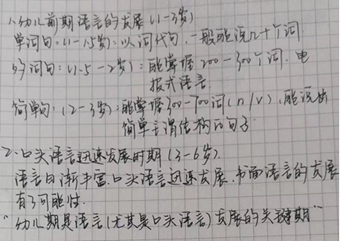 1.幼儿前期语言的发展(1-3岁)
单词句:(1-1.5岁):以词代句,一般能说几十个词
多词句:(1.5-2岁):能掌握200-300个词.电
报式语言
简单句:(2-3岁):能掌握300-700词(n/v),能说出
简单主谓结构的句子
2.口头语言迅速发展时期(3-6岁)
语言日渐丰富.口头语言迅速发展,书面语言的发展
有了可能性.
“幼儿期是语言(尤其是口头语言)发展的关键期”